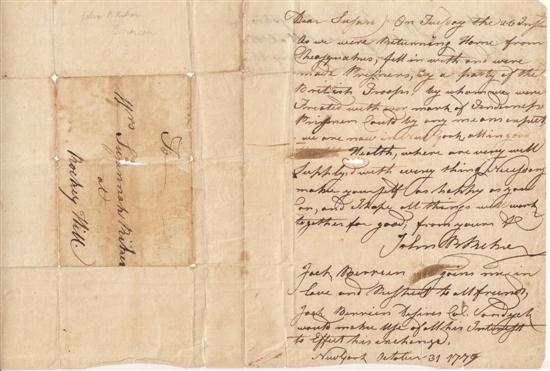 John B Riker
To
Mrs Susannah Riker
at
Rockey Hill
Dear Susan / On Tuesday the 26 Inst
As we were Returning Home from
fell in with and were
made Prisoners, by a party of the
British Troops by whom we were
treated with every mark of Tenderness
Prisoners Could by any means expect
we are now in New York, all in good
Health, where are very well
Supply,d with every thing Necessary
make yourself as happy as you
Can, and I hope all things will work
together for good, from yours &c
John B Riker
Jack Berrien joins me in
Love and Respect to All friends,
Jack Berrien Desires Col.
would make Use of All his Interest
to Effect his exchange.
New York October 31 1779